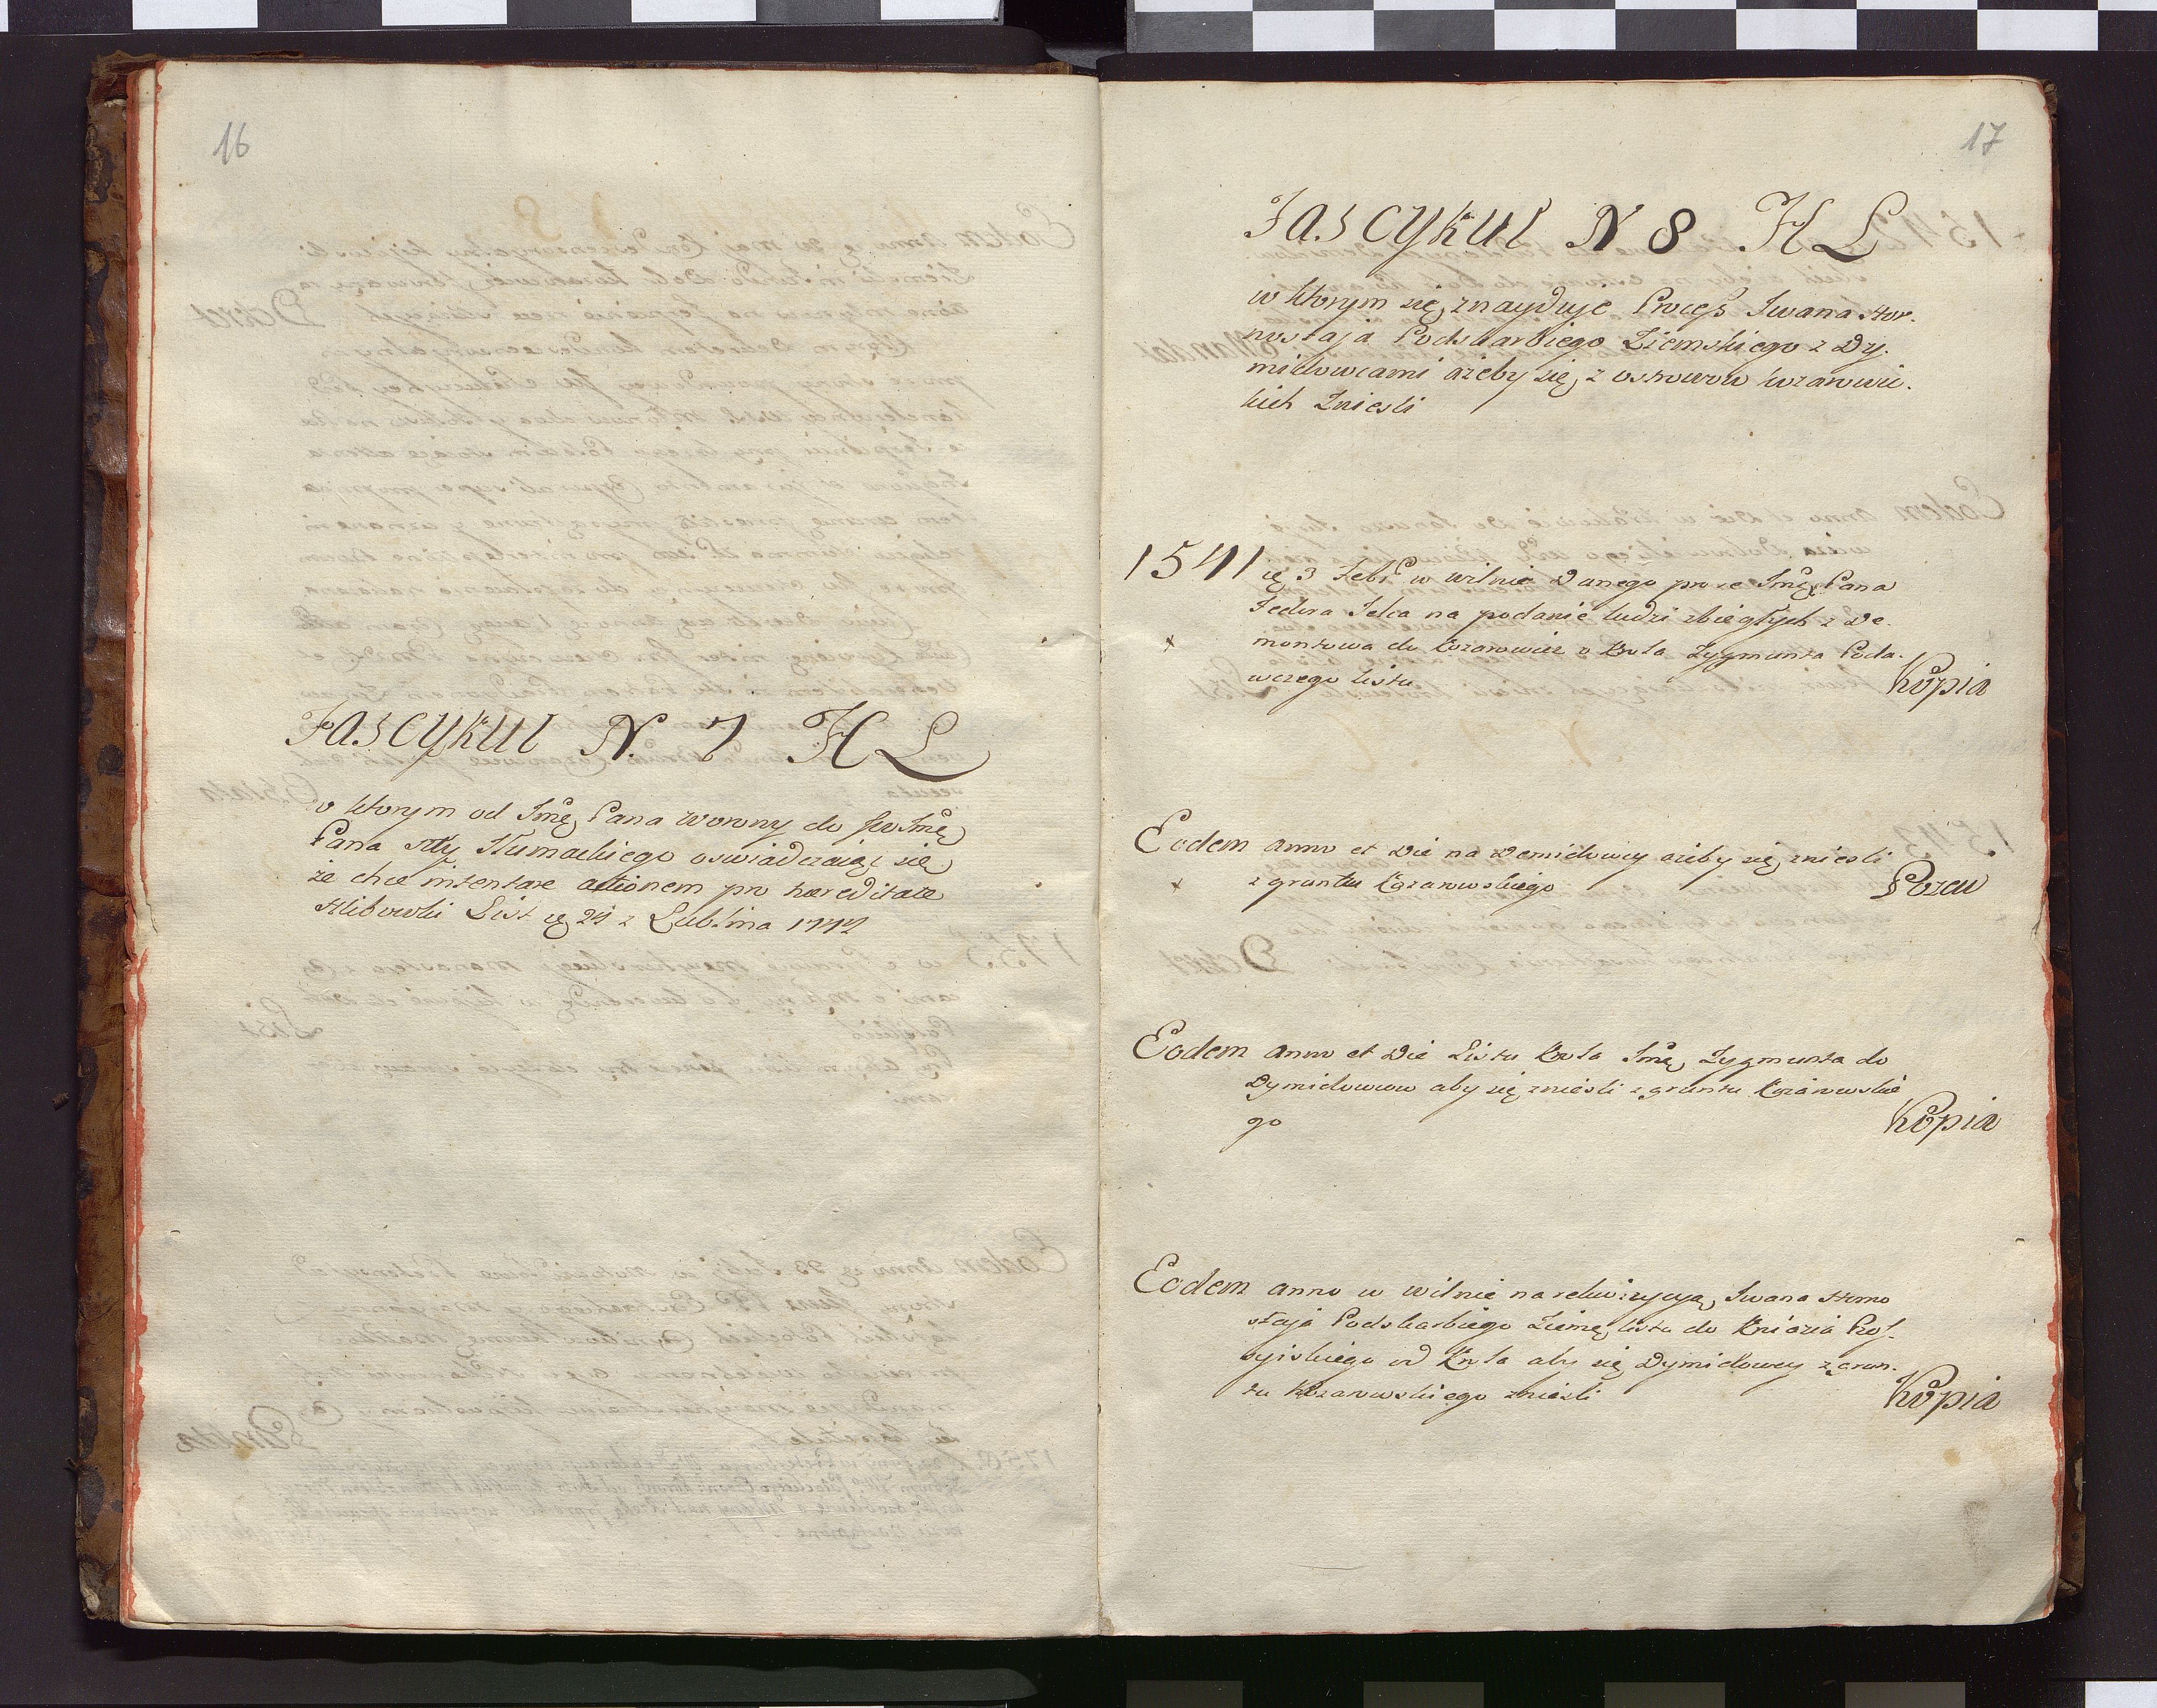 16
Fascykuł N. 7 H L
w ktorym od Jmę Pana Worony do
Pana Humackiego oswiadczaiąc się
że chce intentare actionem pro haereditate
Hlibowki List ię 24 z Lublina
17
Fascykuł N 8 H L
w ktorym się znayduje Process Iwana Hor-
nostaja Podskarbiego Ziemskiego z Dy-
midowcami ażeby się z ostrowow kozarowic-
kich Znieśli
1541 ię 3 Febr w wilnie Danego prze Jmę Pana
Fedora Jelca na podanie ludzi zbiegłych z De-
montowa do Kozarowicz o Krola Zygmunta Poda-
wczego listu Kopia
Eodem anno et Die na Demidowcy ażeby się znieśli
z gruntu Kozarowskiego Pozew
Eodem anno et Die Listu Krola Jmę Zygmunta do
Dymidowcow aby się znieśli z gruntu Kozarowskie
go Kopia
Eodem anno w wilnie na rekwizycyą Iwana Horno
staja Podskarbiego Ziemę listu do Kniazia Pros-
syiskiego od Krola aby się Dymidowcy z grun-
tu Kozarowskiego znieśli Kopia